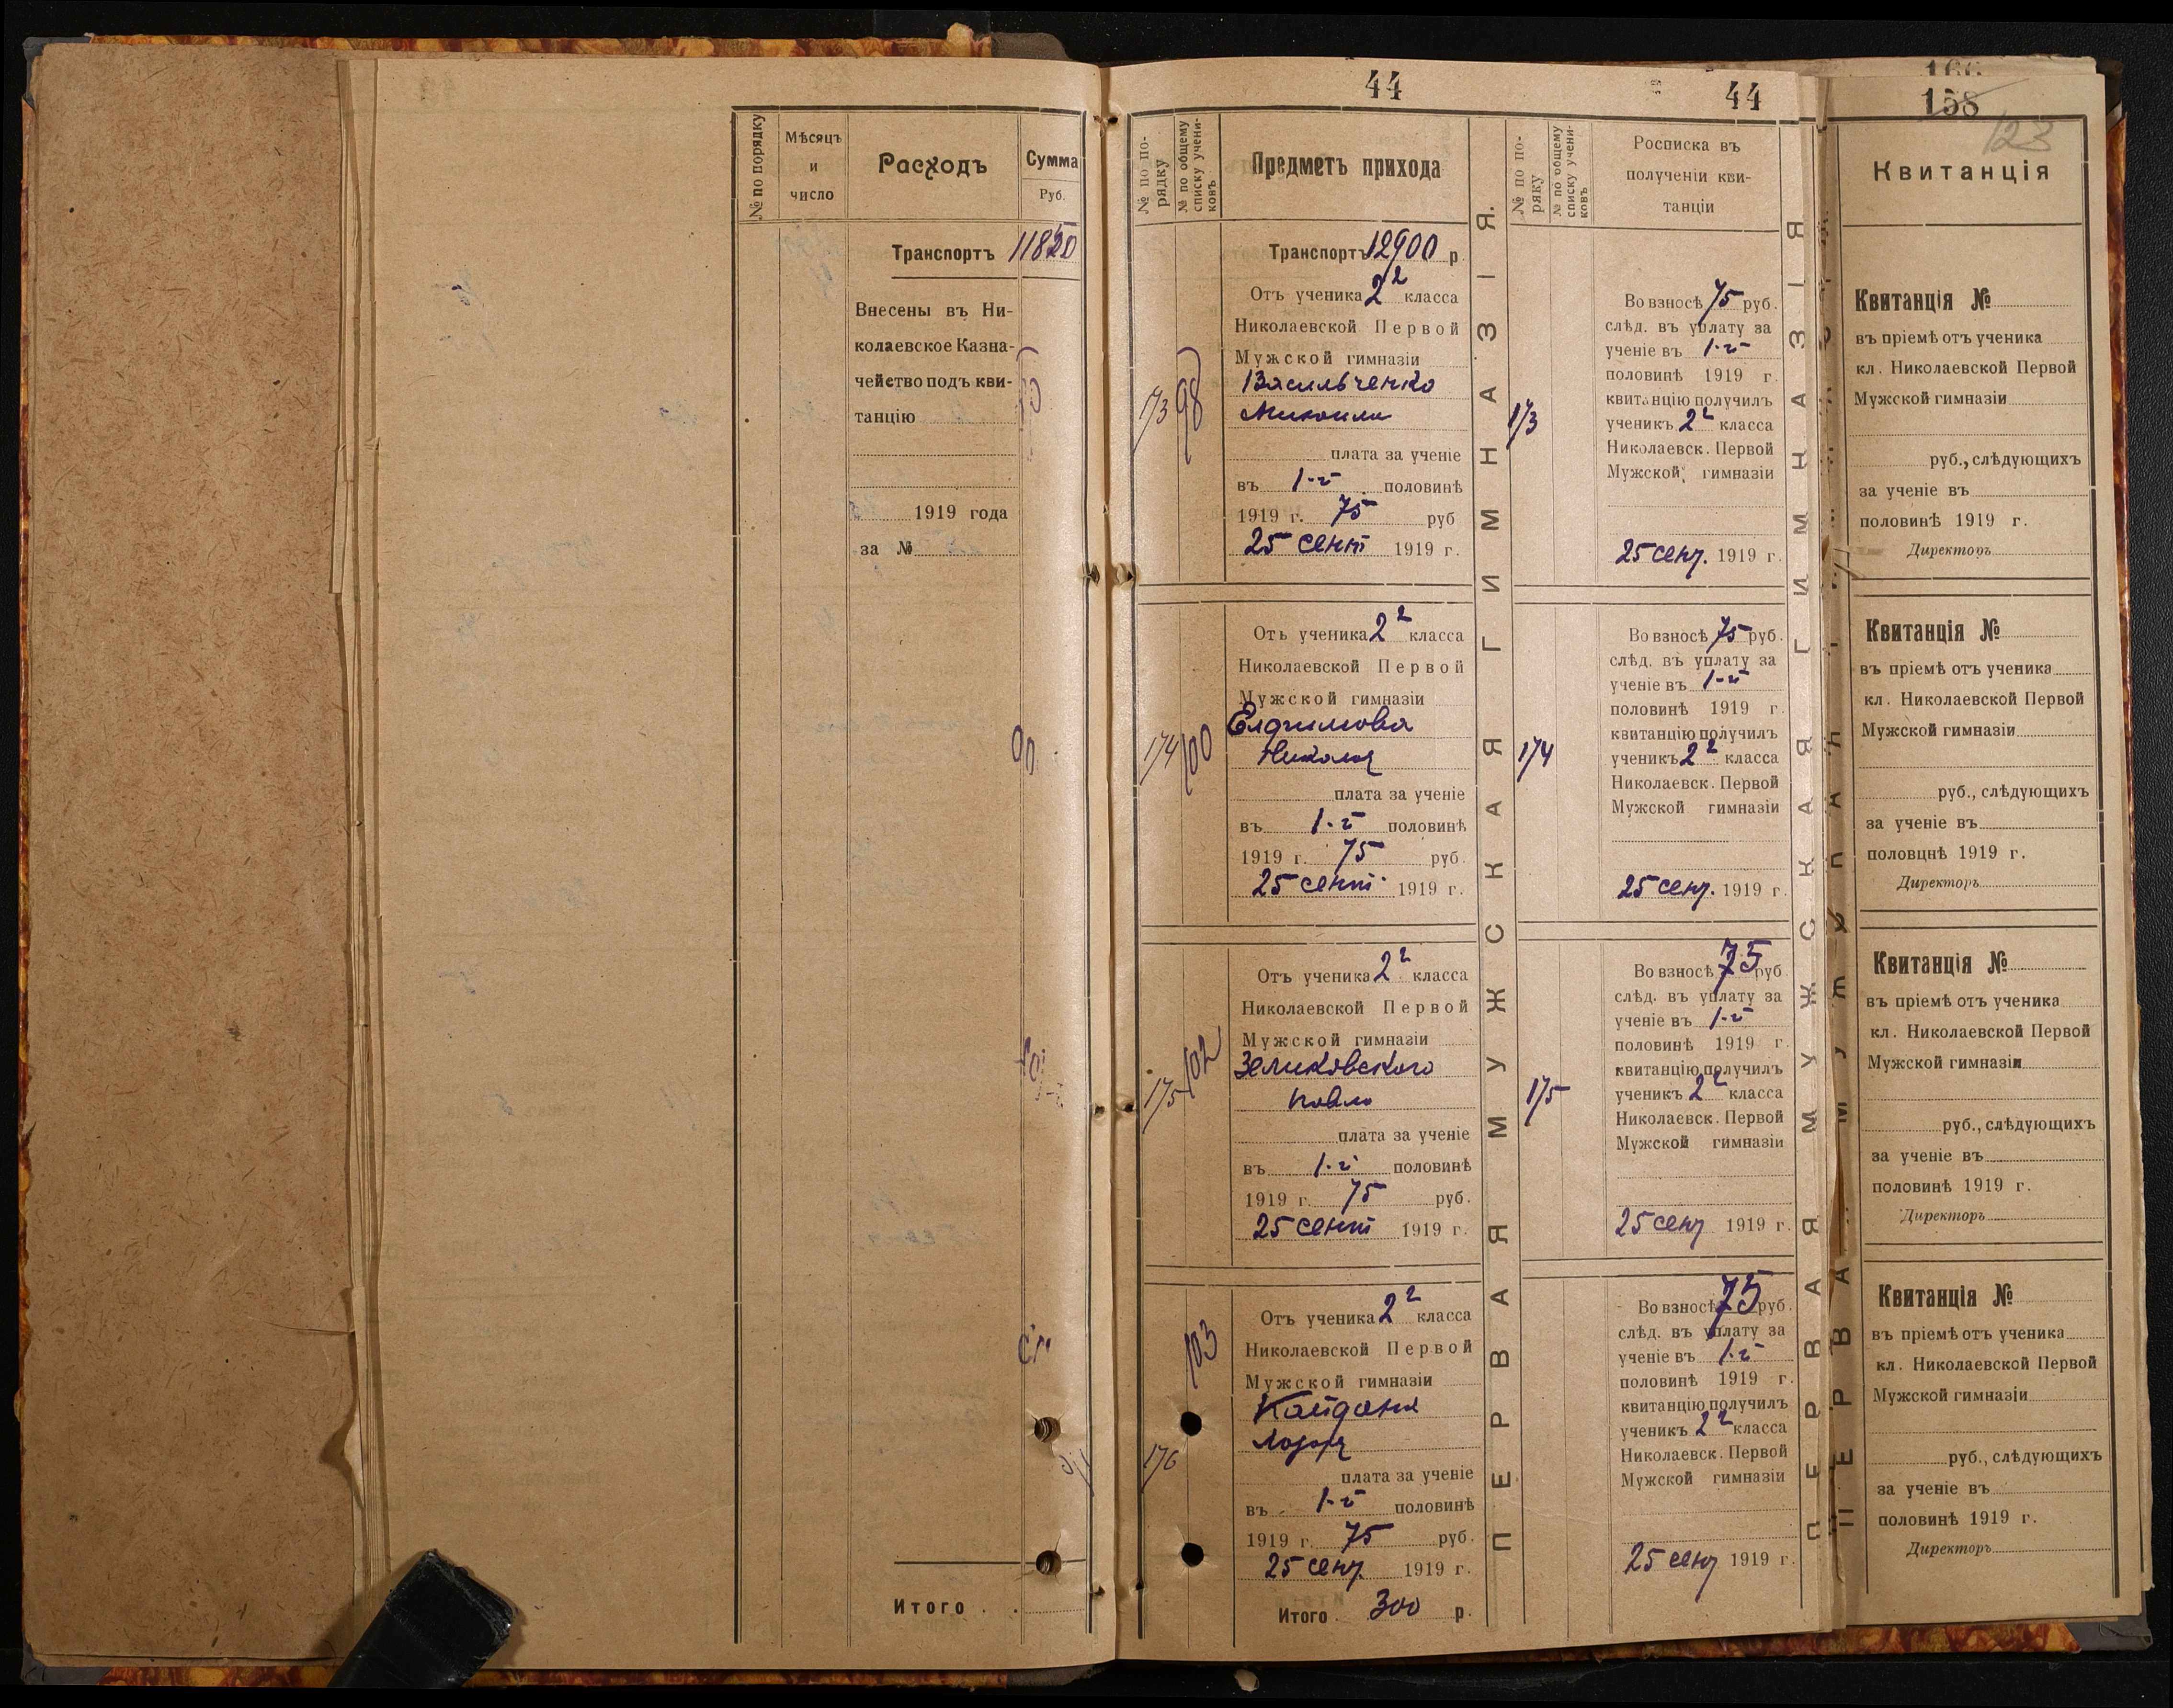 № по порядку
Мѣсяцъ
и
число
Расходъ
Сумма
Руб.
Транспортъ 11820
Внесены въ Ни-
колаевское Казна-
чейство подъ кви-
танцію
1919 года
за №
Итого
44
№ по по-
рядку
№ по общему
списку учени-
ковъ
Предметъ прихода
Транспортъ 12900 р
173
98
Отъ ученика 2² класса
Николаевской Первой
Мужской гимназіи
Васильченко
Михаила
плата за ученіе
въ 1-й половинѣ
1919 г. 75 руб
25 сент 1919 г.
174
100
Отъ ученика 2² класса
Николаевской Первой
Мужской гимназіи
Елфимова
Николая
плата за ученіе
въ 1-й половинѣ
1919 г. 75 руб.
25 сент. 1919 г.
175
102
Отъ ученика 2² класса
Николаевской Первой
Мужской гимназіи
Зеликовского
Павла
плата за ученіе
въ 1-й половинѣ
1919 г. 75 руб.
25 сент 1919 г.
176
103
Отъ ученика 2² класса
Николаевской Первой
Мужской гимназіи
Кайданя
плата за ученіе
въ 1-й половинѣ
1919 г. 75 руб.
25 сен. 1919 г.
Итого 300 р.
ПЕРВАЯ МУЖСКАЯ ГИМНАЗІЯ.
44
№ по по-
ряку
№ по общему
списку учени-
ковъ
Росписка въ
полученіи кви-
танціи
173
Во взносѣ 75 руб.
слѣд. въ уплату за
ученіе въ 1-й
половинѣ 1919 г.
квитанцію получилъ
ученикъ 2² класса
Николаевск. Первой
Мужской гимназіи
25 сен. 1919 г.
174
Во взносѣ 75 руб.
слѣд. въ уплату за
ученіе въ 1-й
половинѣ 1919 г.
квитанцію получилъ
ученикъ 2² класса
Николаевск. Первой
Мужской гимназіи
25 сен. 1919 г.
175
Во взносѣ 75 руб
слѣд. въ уплату за
ученіе въ 1-й
половинѣ 1919 г.
квитанцію получилъ
ученикъ 2² класса
Николаевск. Первой
Мужской гимназіи
25 сен 1919 г.
Во взносѣ 75 руб.
слѣд. въ уплату за
ученіе въ 1-й
половинѣ 1919 г.
квитанцію получилъ
ученикъ 2² класса
Николаевск. Первой
Мужской гимназіи
25 сен 1919 г.
ПЕРВАЯ МУЖСКАЯ ГИМНАЗІЯ
158
123
Квитанція
Квитанція №
въ пріемѣ отъ ученика
кл. Николаевской Первой
Мужской гимназіи
руб., слѣдующихъ
за ученіе въ
половинѣ 1919 г.
Директоръ
Квитанція №
въ пріемѣ отъ ученика
кл. Николаевской Первой
Мужской гимназіи
руб., слѣдующихъ
за ученіе въ
половцнѣ 1919 г.
Директоръ
Квитанція №
въ пріемѣ отъ ученика
кл. Николаевской Первой
Мужской гимназіи
руб., слѣдующихъ
за ученіе въ
половинѣ 1919 г.
Директоръ
Квитанція №
въ пріемѣ отъ ученика
кл. Николаевской Первой
Мужской гимназіи
руб., слѣдующихъ
за ученіе въ
половинѣ 1919 г.
Директоръ